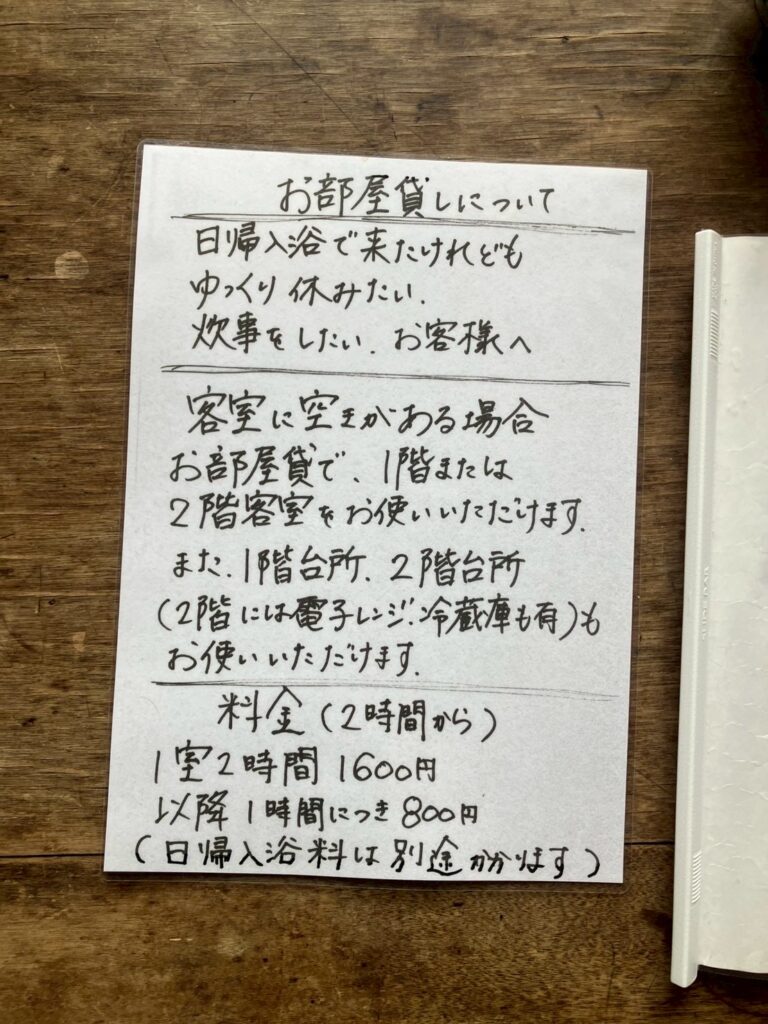 お部屋貸しについて
日帰入浴で来たけれども
ゆっくり休みたい.
炊事をしたい. お客様へ
客室に空きがある場合
お部屋貸で、1階または
2階客室をお使いいただけます.
また.1階台所.2階台所
(2階には電子レンジ.冷蔵庫も有)も
お使いいただけます.
料金(2時間から)
1室2時間 1600円
以降1時間につき800円
(日帰入浴料は別途かかります)